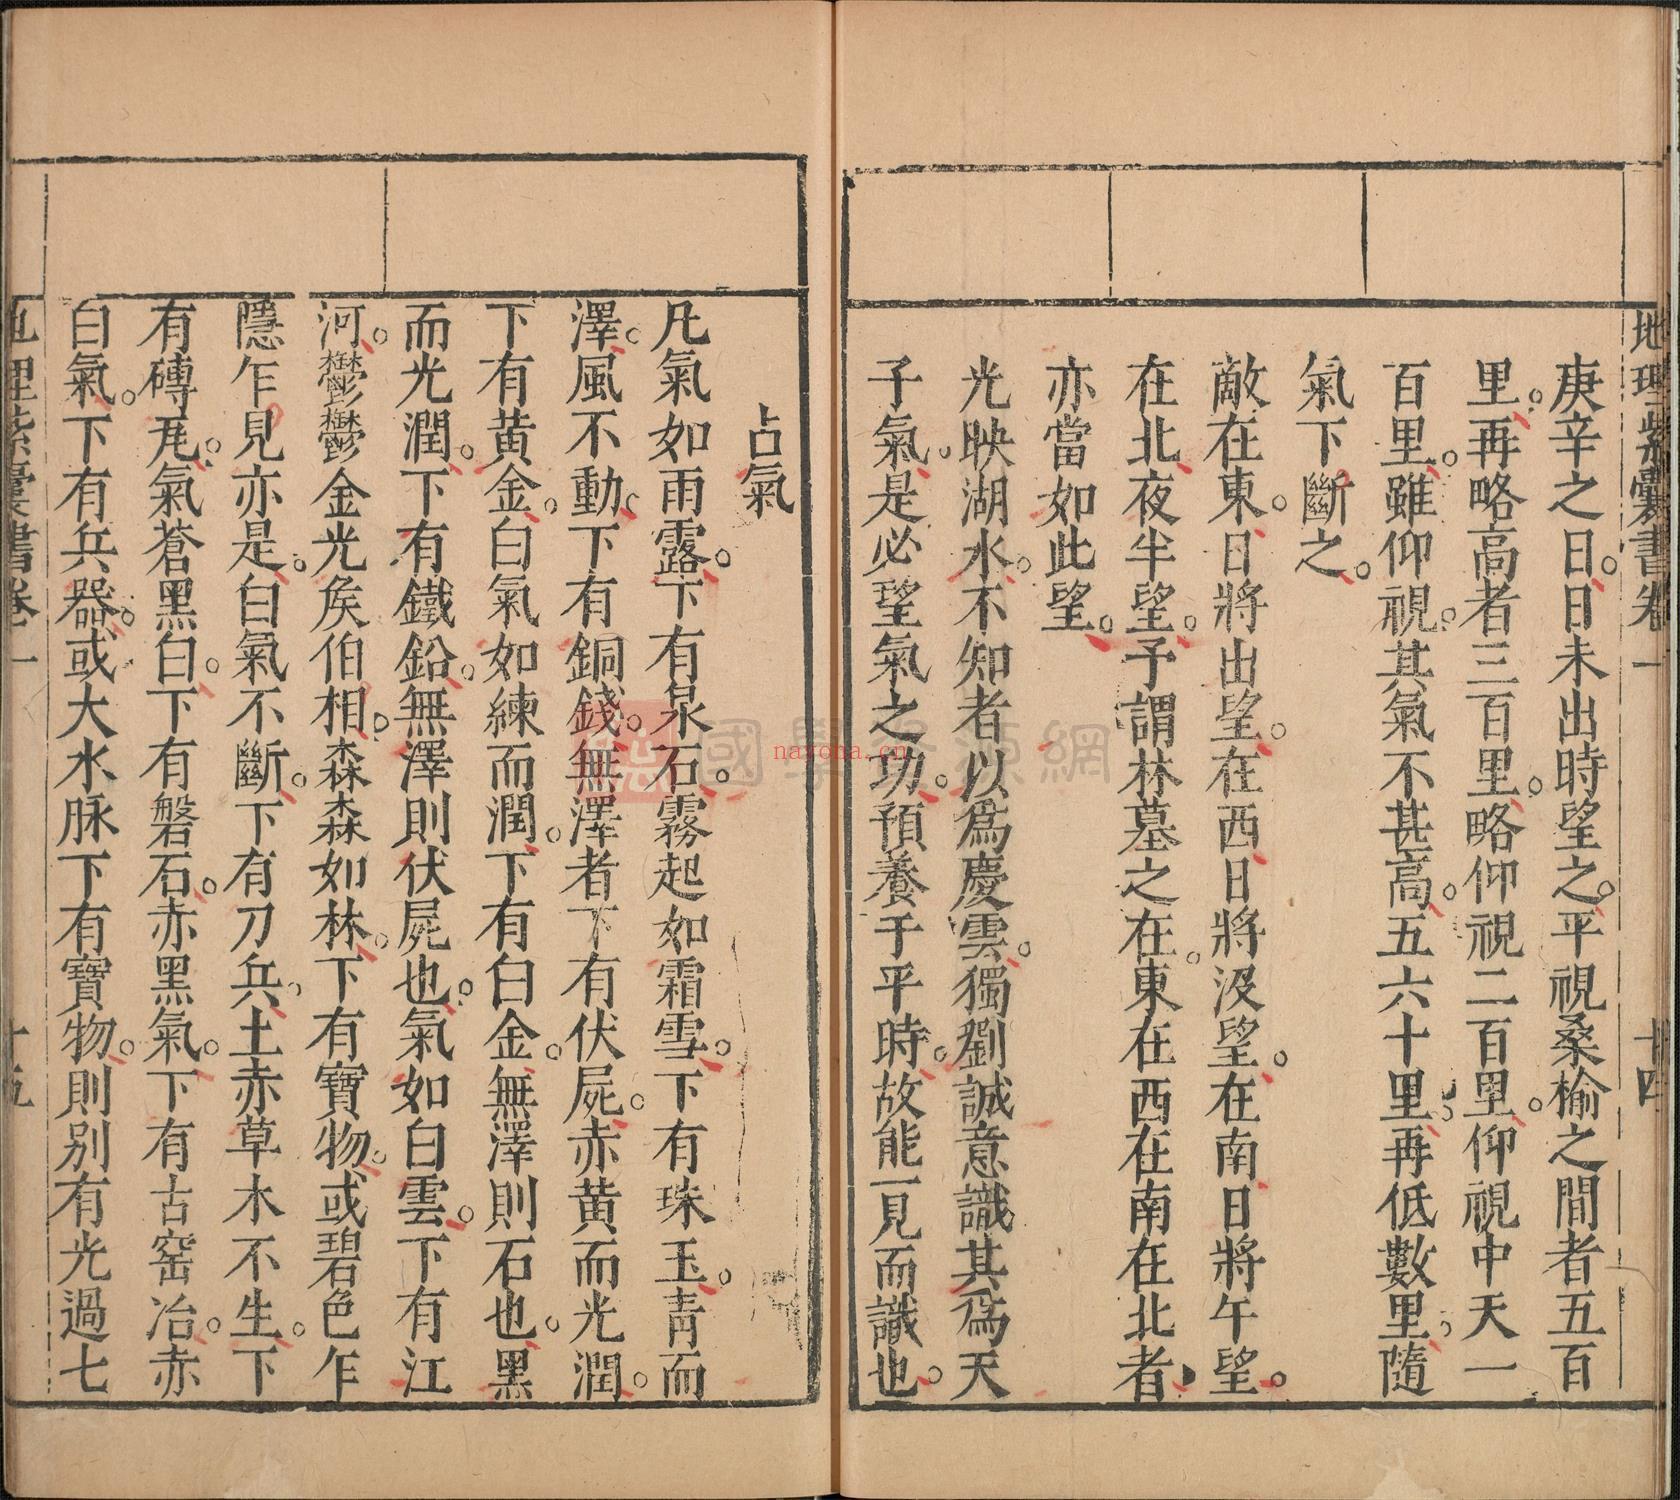 地理紫囊書卷一
十四
庚辛之日。日未出時望之。平視桑榆之間者五百
里。再略高者三百里。略仰視二百里。仰視中天一
百里。雖仰視。其氣不甚高。五六十里。再低數里。隨
氣下斷之。
敵在東。日將出望。在西日將沒望。在南日將午望。
在北夜半望。予謂林墓之在。東在西在南在北者
亦當如此望。
光映湖水。不知者以爲慶雲。獨劉誠意識其爲天
子氣。是必望氣之功。預養于平時。故能一見而識也。
占氣
凡氣如雨露。下有泉石。霧起如霜雪。下有珠玉。青而
澤。風不動。下有銅錢。無澤者下有伏屍。赤黄而光潤。
下有黄金。白氣如練而潤。下有白金。無澤則石也。黑
而光潤。下有鐵鉛。無澤則伏屍也。氣如白雲。下有江
河。鬱鬱金光矦伯相。森森如林。下有寶物。或碧色乍
隱乍見亦是。白氣不斷。下有刀兵。土赤草木不生。下
有磚瓦。氣蒼黑白。下有磐石。赤黑氣。下有古窑冶。赤
白氣。下有兵器。或大水脉下有寶物。則别有光過七
地理紫囊書卷一
十五
國學 源網
nayona.cn